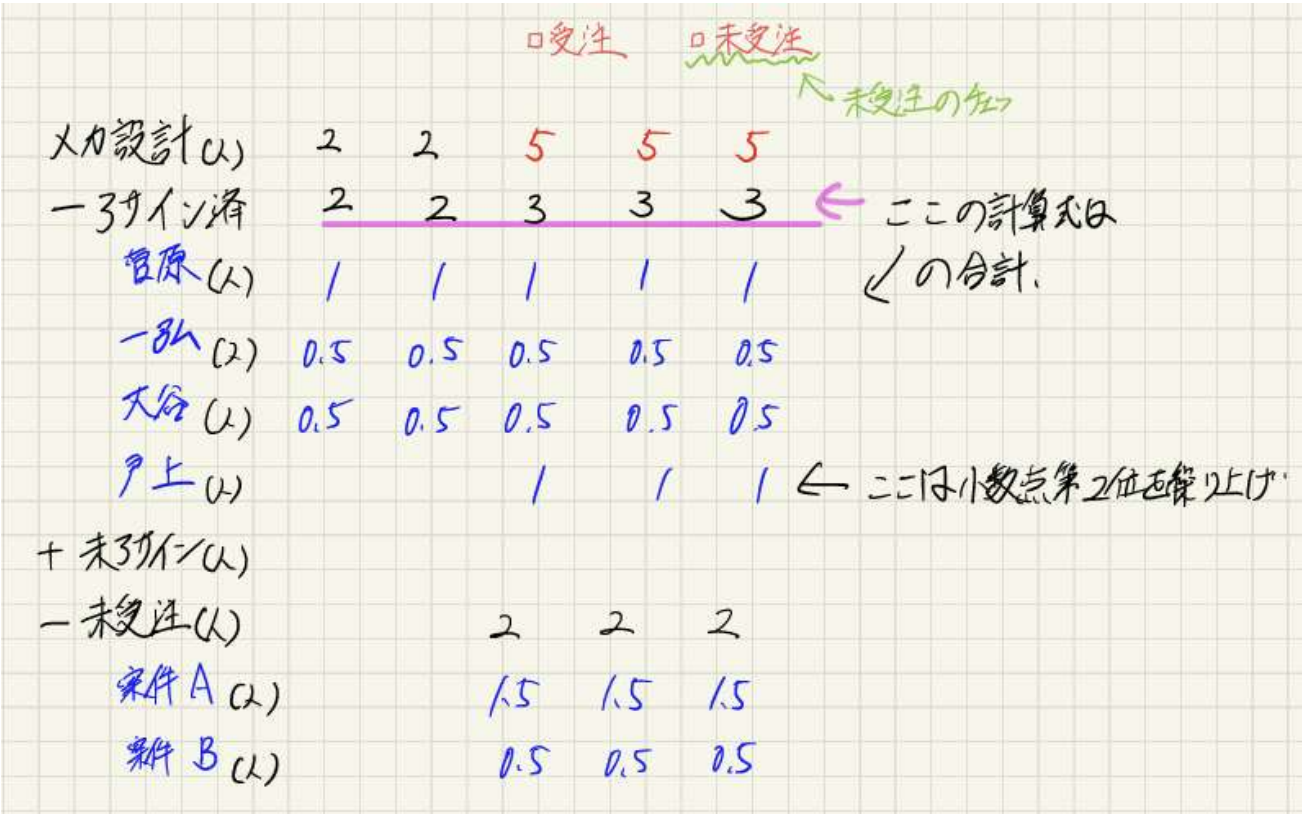 □受注 □未受注
未受注のチェック
メカ設計(人) 2 2 5 5 5
－アサイン済 2 2 3 3 3 ← ここの計算式は
菅原(人) 1 1 1 1 1 ↙ の合計、
一弘(人) 0.5 0.5 0.5 0.5 0.5
大谷(人) 0.5 0.5 0.5 0.5 0.5
戸上(人) 1 1 1 ← ここは小数点第2位を繰り上げ
＋ 未アサイン(人)
－ 未受注(人) 2 2 2
案件A(人) 1.5 1.5 1.5
案件B(人) 0.5 0.5 0.5